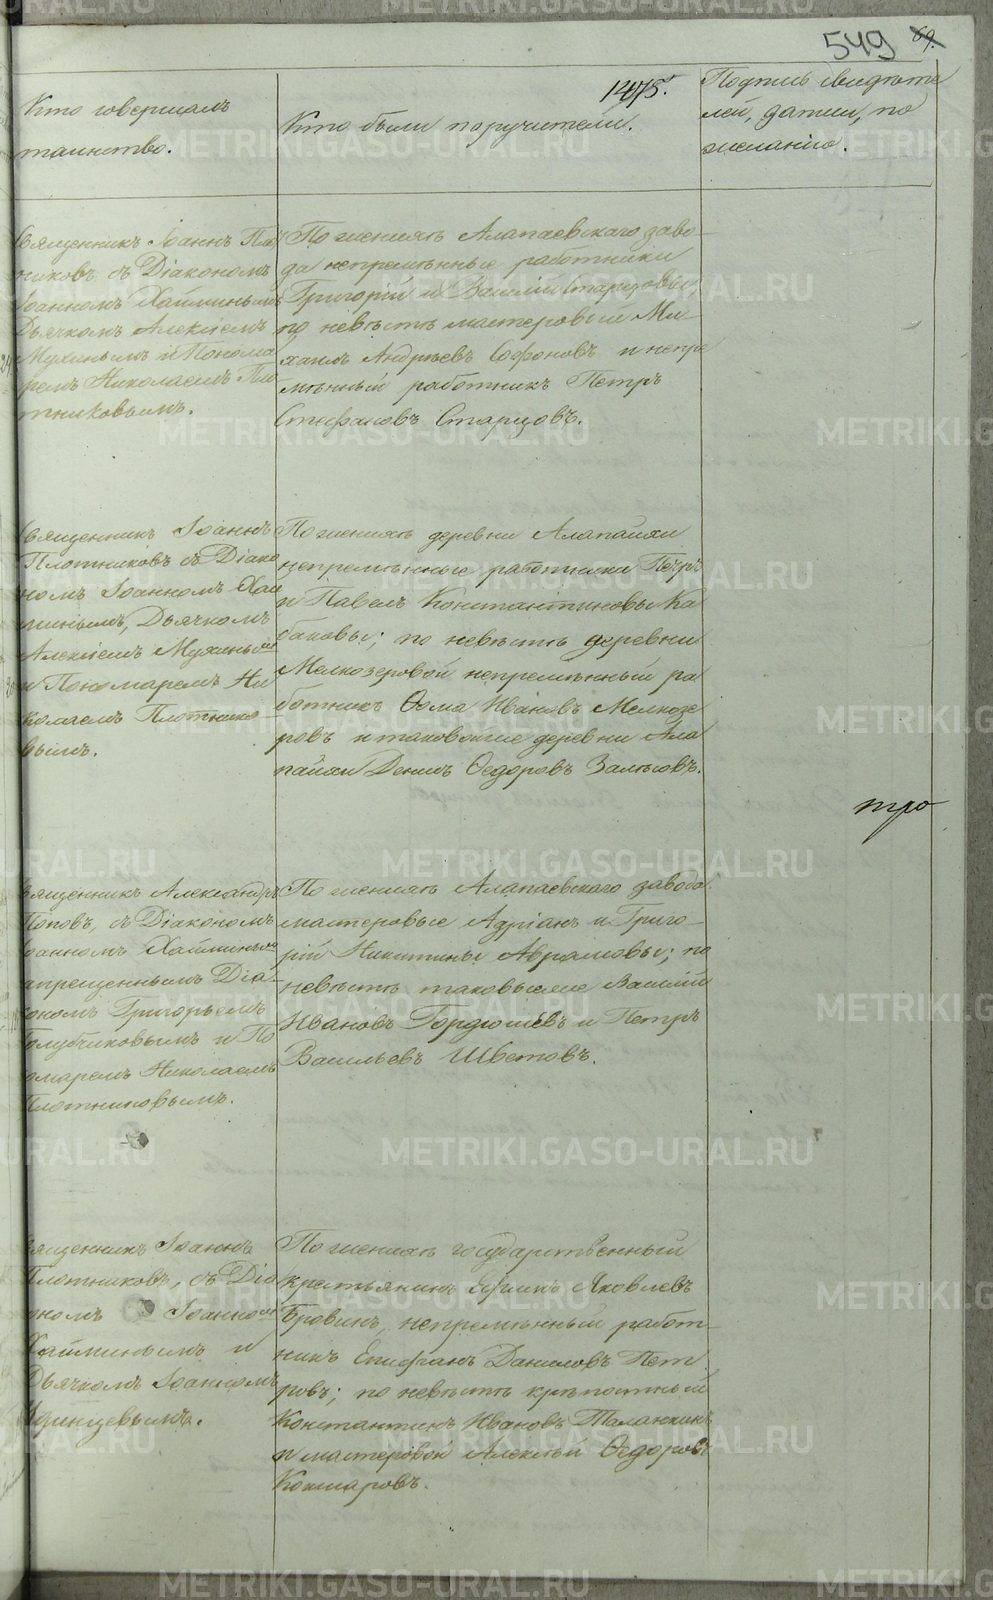 549 69.
1475.
Кто совершалъ
таинство.
Кто были поручители.
Подпись свидѣте
лей, записи, по
желанію.
Священникъ Іоаннъ Пло
тниковъ съ Діакономъ
Іоанномъ Хайминымъ
Дьячкомъ Алексіемъ
Мухинымъ и Понома
ремъ Николаемъ Пло
тниковымъ.
По женихѣ Алапаевскаго заво-
да непремѣнные работники
Григорій и Василій Старцовы,
по невѣстѣ мастеровые Ми-
хаилъ Андреевъ Софоновъ и непре
мѣнный работникъ Петръ
Стефановъ Старцовъ.
Священникъ Іоаннъ
Плотниковъ съ Діако
номъ Іоанномъ Хай
минымъ, Дьячкомъ
Алексіемъ Мухинымъ
и Пономаремъ Ни
колаемъ Плотнико-
вымъ.
По женихѣ деревни Алапаихи
непремѣнные работники Петръ
и Павелъ Константиновы Ка
баковы; по невѣстѣ деревни
Мелкозеровой непремѣнный ра
ботникъ Ѳома Ивановъ Мелкозе
ровъ и таковойже деревни Ала
паихи Денисъ Ѳедоровъ Залѣсовъ.
тро
Священникъ Александръ
Поповъ, съ Діакономъ
Іоанномъ Хайминымъ
запрещеннымъ Діа-
кономъ Григорьемъ
Голубчиковымъ и По
номаремъ Николаемъ
Плотниковымъ.
По женихѣ Алапаевскаго завода
мастеровые Адріанъ и Григо-
рій Никитины Аврамовы; по
невѣстѣ таковыеже Василій
Ивановъ Гордюшевъ и Петръ
Васильевъ Шветовъ.
Священникъ Іоаннъ
Плотниковъ, съ Діа
кономъ Іоанномъ
Хайминымъ и
Дьячкомъ Іоанномъ
Удинцевымъ.
По женихѣ государственный
крестьянинъ Ефимъ Яковлевъ
Бровинъ, непремѣнный работ-
никъ Епифанъ Даниловъ Пет
ровъ; по невѣстѣ крѣпостный
Константинъ Ивановъ Таланкинъ
и мастеровой Алексѣй Ѳедоровъ
Кошаровъ.
METRIKI.GASO-URAL.RU